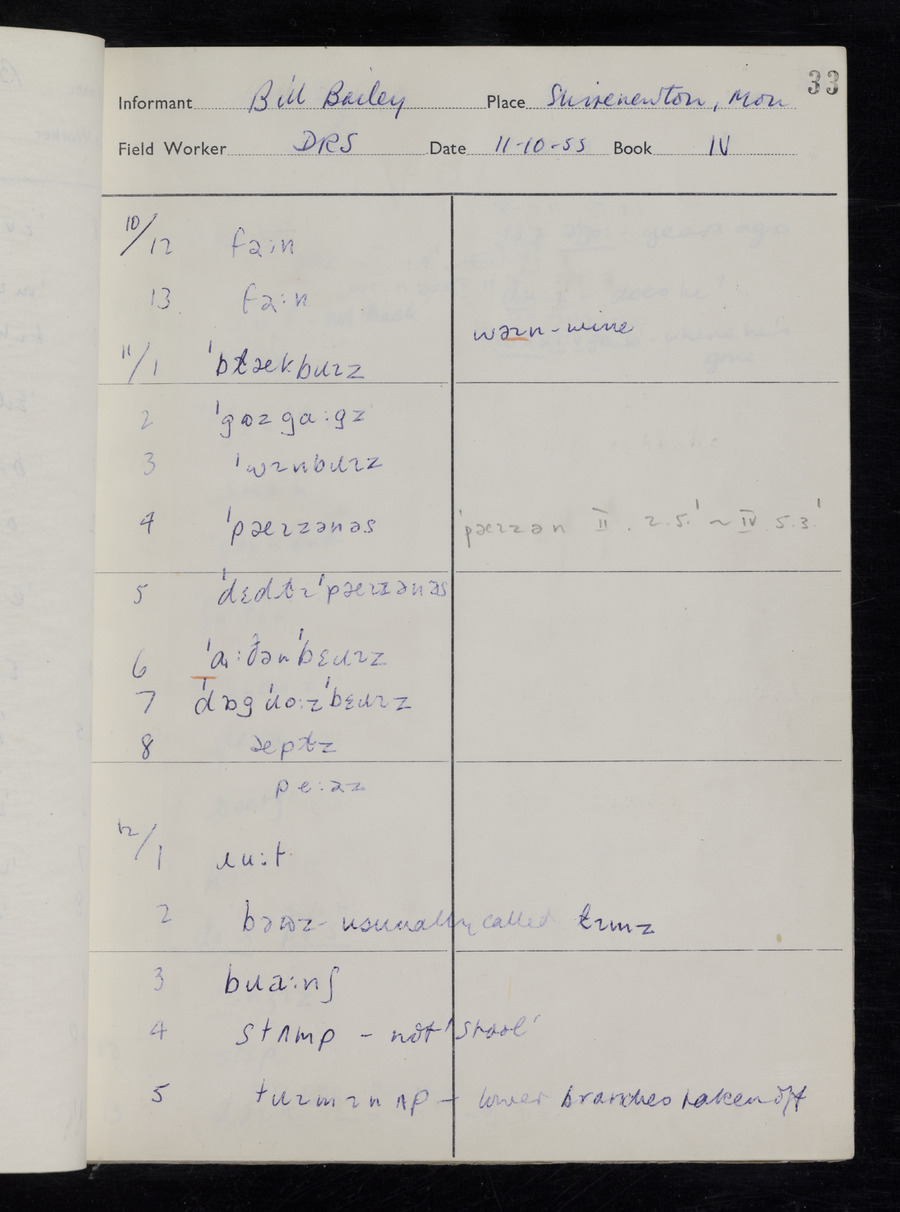 33
Informant Bill Bailey Place Shirenewton, Mon
Field Worker DRS Date 11-10-55 Book IV
10/12 fəːn
13 fəːn
wəɪn - wine
11/1 ˈbɫækbɹɪz
2 ˈgɷzgɑːgz
3 ˈwɪnbɹɪz
4 ˈpæɪzənəs
ˈpæɪzən II. 2.5.' ~ IV 5.3'
5 ˈdɛdɫɪˈpæɪzənəs
6 ˈɑːðənˈbɛɹɪz
7 ˈdɒgˈɹoːzˈbɛɹɪz
8 æpɫz
peːəz
12/1 ɹuːt
2 bəɷz - usually called ɫɪmz
3 bɹaːnʃ
4 stʌmp - not 'stool'
5 tɹɪmɪn ʌp - lower branches taken off